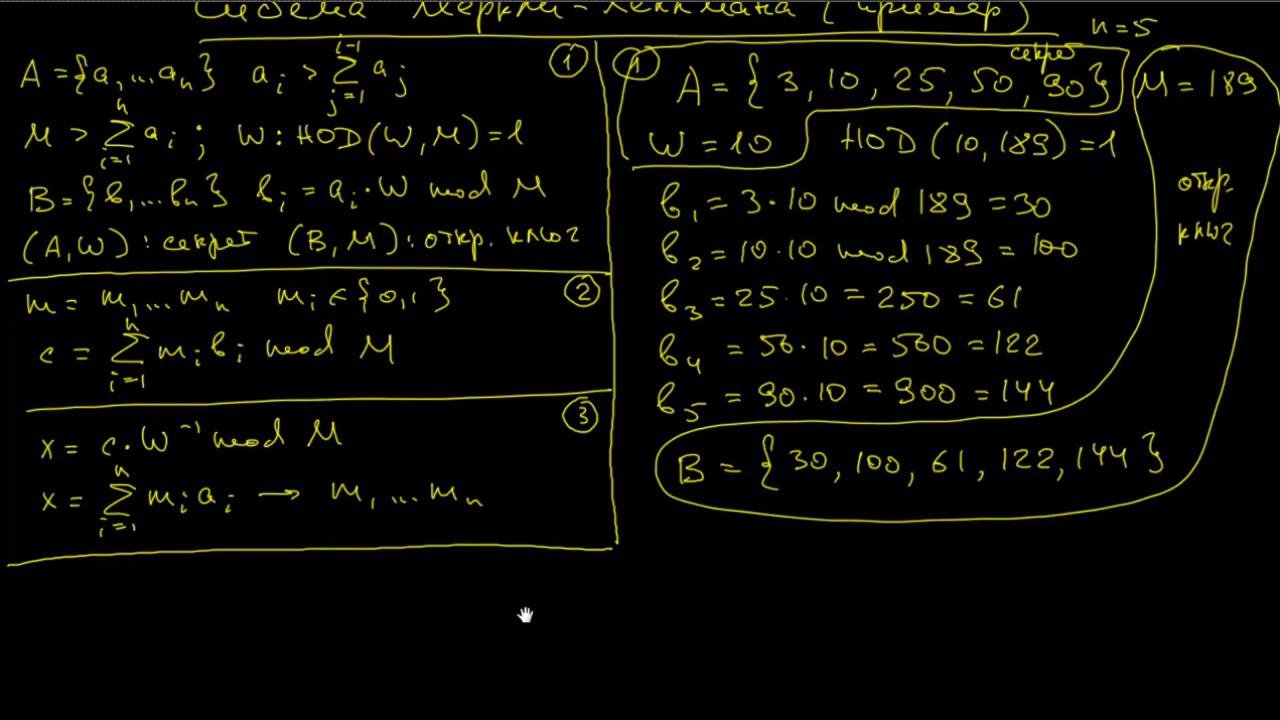 Система Меркли-Хеллмана (пример)
n=5
A={a₁...aₙ} aᵢ > ∑ⱼ₌₁ⁱ⁻¹ aⱼ ①
M > ∑ᵢ₌₁ⁿ aᵢ ; W: НОД(W, M)=1
B={b₁...bₙ} bᵢ = aᵢ·W mod M
(A,W): секрет (B,M): откр. ключ
m = m₁...mₙ mᵢ ∈ {0,1} ②
c = ∑ᵢ₌₁ⁿ mᵢbᵢ mod M
x = c·W⁻¹ mod M ③
x = ∑ᵢ₌₁ⁿ mᵢaᵢ → m₁...mₙ
① секрет
A = { 3, 10, 25, 50, 90} M = 189
W = 10 НОД(10,189)=1
откр.
ключ
b₁ = 3·10 mod 189 = 30
b₂ = 10·10 mod 189 = 100
b₃ = 25·10 = 250 = 61
b₄ = 50·10 = 500 = 122
b₅ = 90·10 = 900 = 144
B = {30, 100, 61, 122, 144}